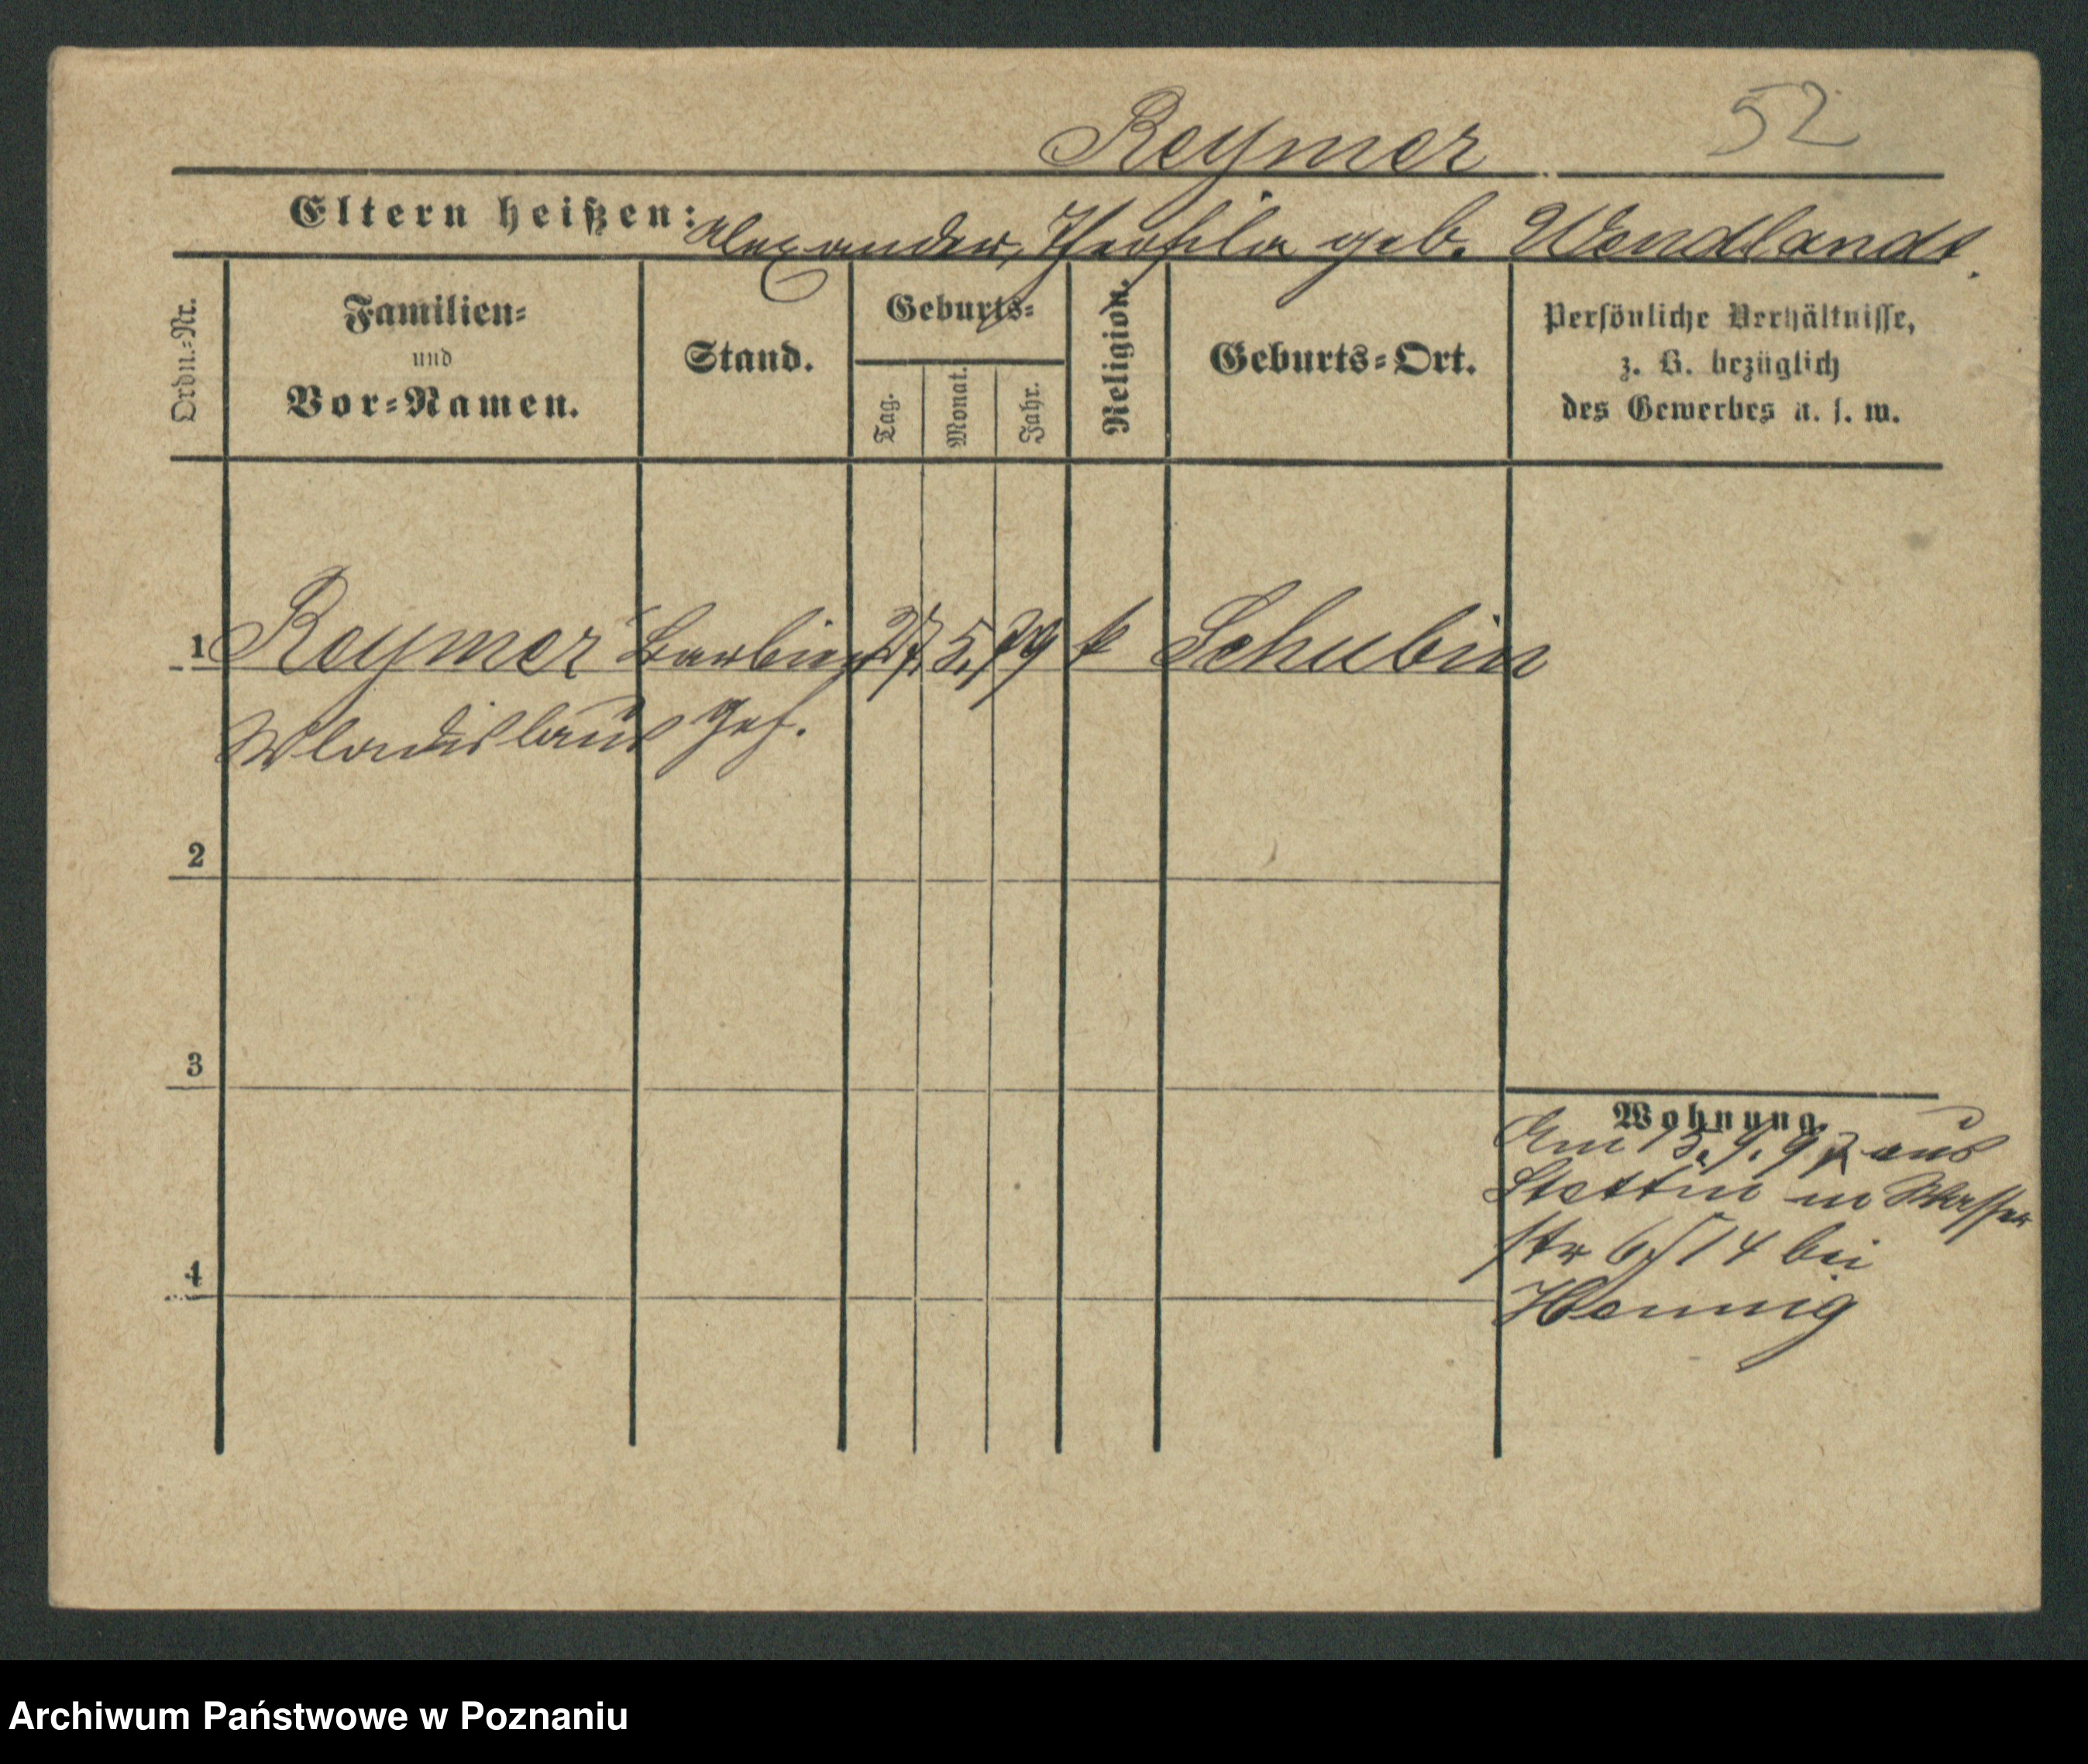 Reymer 52
Eltern heißen: Alexander, Theofila geb. Wendlandt.
Ordn.-Nr.
Familien-
und
Vor-Namen.
Stand.
Geburts-
Tag.
Monat.
Jahr.
Religion.
Geburts-Ort.
Persönliche Verhältnisse,
z. B. bezüglich
des Gewerbes u. s. w.
1 Reymer Barbier 27. 5. 79 k Schubin
Wladislaus Geh.
2
3
4
Wohnung.
Am 15. 9. 97 aus
Stettin in Wasser
str 6/14 bei
Hennig
Archiwum Państwowe w Poznaniu